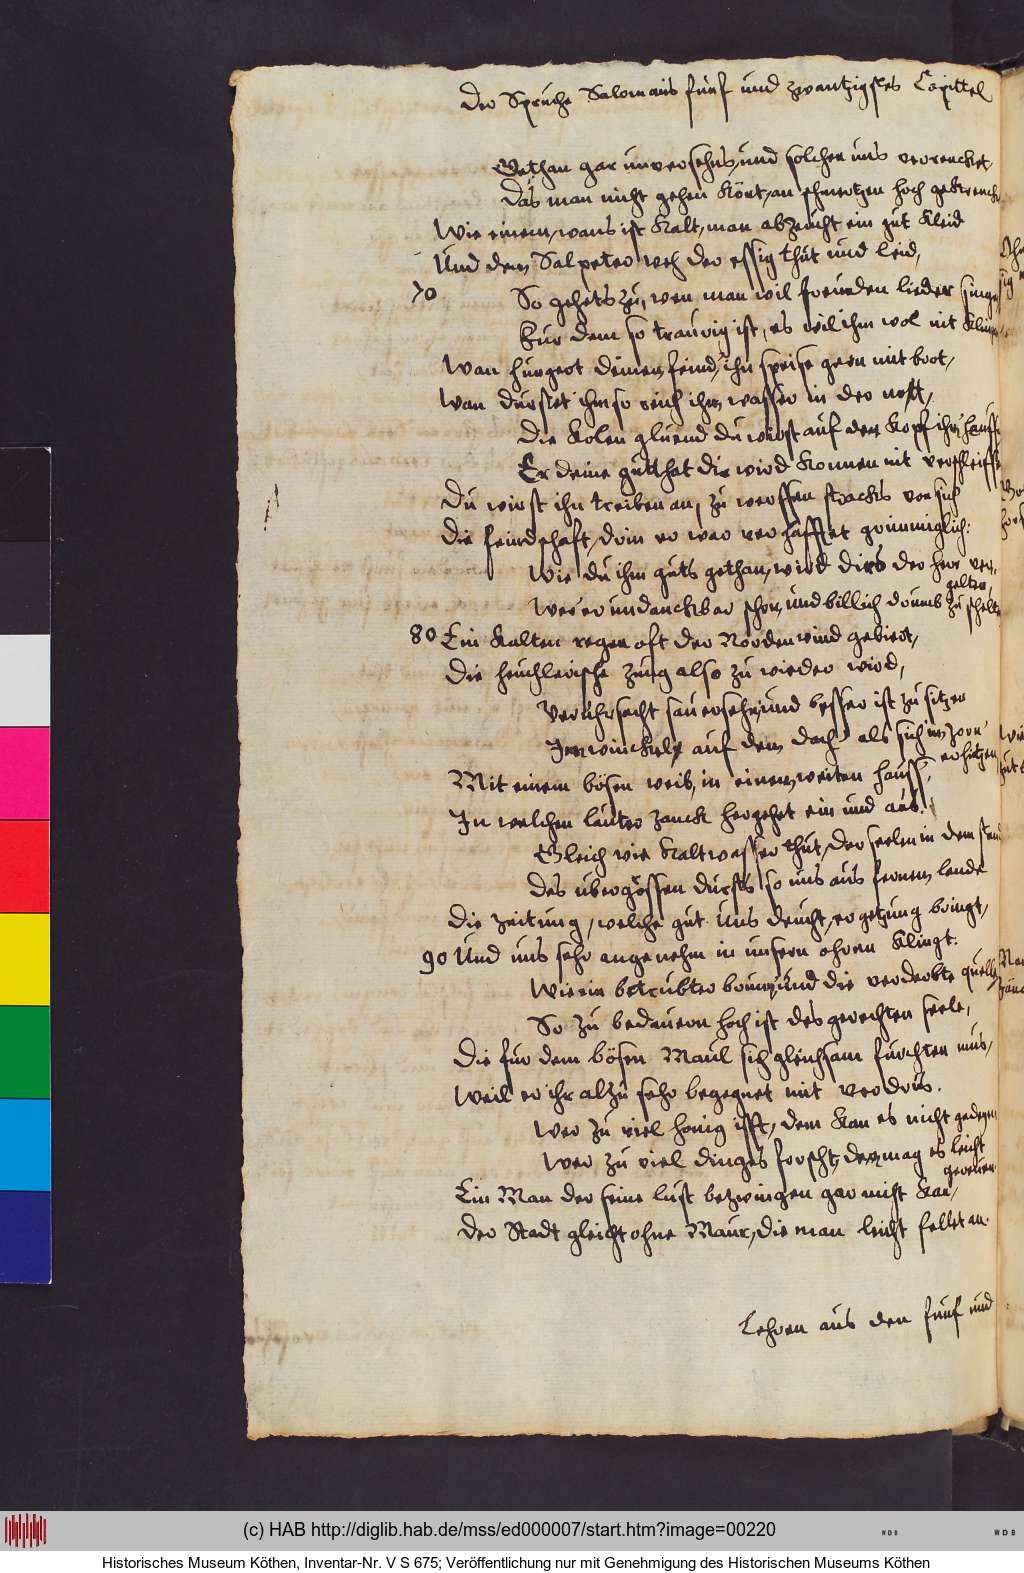 Der Spruche Salomais funf und zwantzigstes Capittel
Gethan gar unversehns, und solcher uns verrencket,
Das man nicht gehen könt, an schmertzen hoch gekrenck
Wie einem, wans ist kalt, man abzeucht ein gut kleid
Und dem Salpeter weh der essig thut und leid,
70 So gehets zu, wen man wil freunden lieder singe
Fur dem so traurig ist, es wil ihm wol nit kling
Wan hungert deinem feind, ihn speise gern mit brot,
Wan durstet ihm so reich ihm wasser in der nott,
Die kolen gluend du wirst auf den kopf ihm hauff
Er deine gutthat dir wird konnen nit verschleiff
Du wirst ihn treiben an, zu werffen stracks von sich
Die feindschaft, drin er war verhafftet grimmiglich:
Wie du ihm guts gethan, wird dirs der herr ver-
gelten,
Wer er undanckbar schon, und billich drumb zu schelt
80 Ein kalten regen oft der Nordenwind gebiert,
Die heuchlerische zung also zu wieder wird,
Veruhrsacht sauersehn, und besser ist zu sitzen
Im winckel auf dem dach als sich im zorn
erhitzen
Mit einem bösen weib, in einem weiten hauss,
In welchen lauter zanck hergehet ein und aus.
Gleich wie kalt wasser thut, der seelen in dem stand
Des ubergössen dursts so uns aus fernem lande
Die zeitung, welche gut uns deucht, ergetzung bringt,
90 Und uns sehr angenehm in unsern ohren klingt.
Wie ein betrubter brunn, und die verderbte quelle
So zu bedauern hoch ist des gerechten seele,
Die fur dem bösen Maul sich gleichsam furchten mus,
Weil er ihr alzu sehr begegnet mit verdrus.
Wer zu viel honig isst, dem kan es nicht gedeyen,
Wer zu viel dinges forscht, dem mag es leicht
gereuen.
Ein Man der seine lust bezwingen gar nicht kan,
Der Stadt gleicht ohne Maur, die man leicht fellet an.
Lehren aus den funf und
(c) HAB http://diglib.hab.de/mss/ed000007/start.htm?image=00220
WDB
WDB
Historisches Museum Köthen, Inventar-Nr. V S 675; Veröffentlichung nur mit Genehmigung des Historischen Museums Köthen